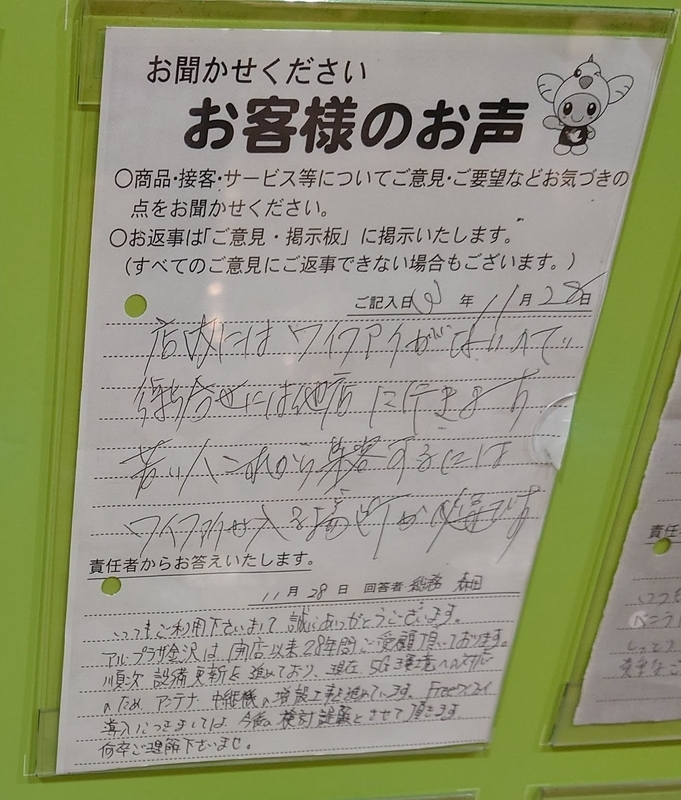 お聞かせください
お客様のお声
○商品・接客・サービス等についてご意見・ご要望などお気づきの
点をお聞かせください。
○お返事は「ご意見・掲示板」に掲示いたします。
(すべてのご意見にご返事できない場合もございます。)
ご記入日 年 11月28日
店内にはワイファイが
待合せには他店に行きます
若い人これから集客するには
ワイファイせ入る場所が必要です
責任者からお答えいたします。
11月28日 回答者 総務 森田
いつもご利用下さいまして誠にありがとうございます。
アル・プラザ金沢は開店以来28年間ご愛顧頂いております。
順次設備更新を進めており、現在5G環境への
のため アンテナ、中継機の増設工事を進めています。Freeワイファイ
導入につきましては、今後の検討課題とさせて頂きます
何卒ご理解下さいませ。